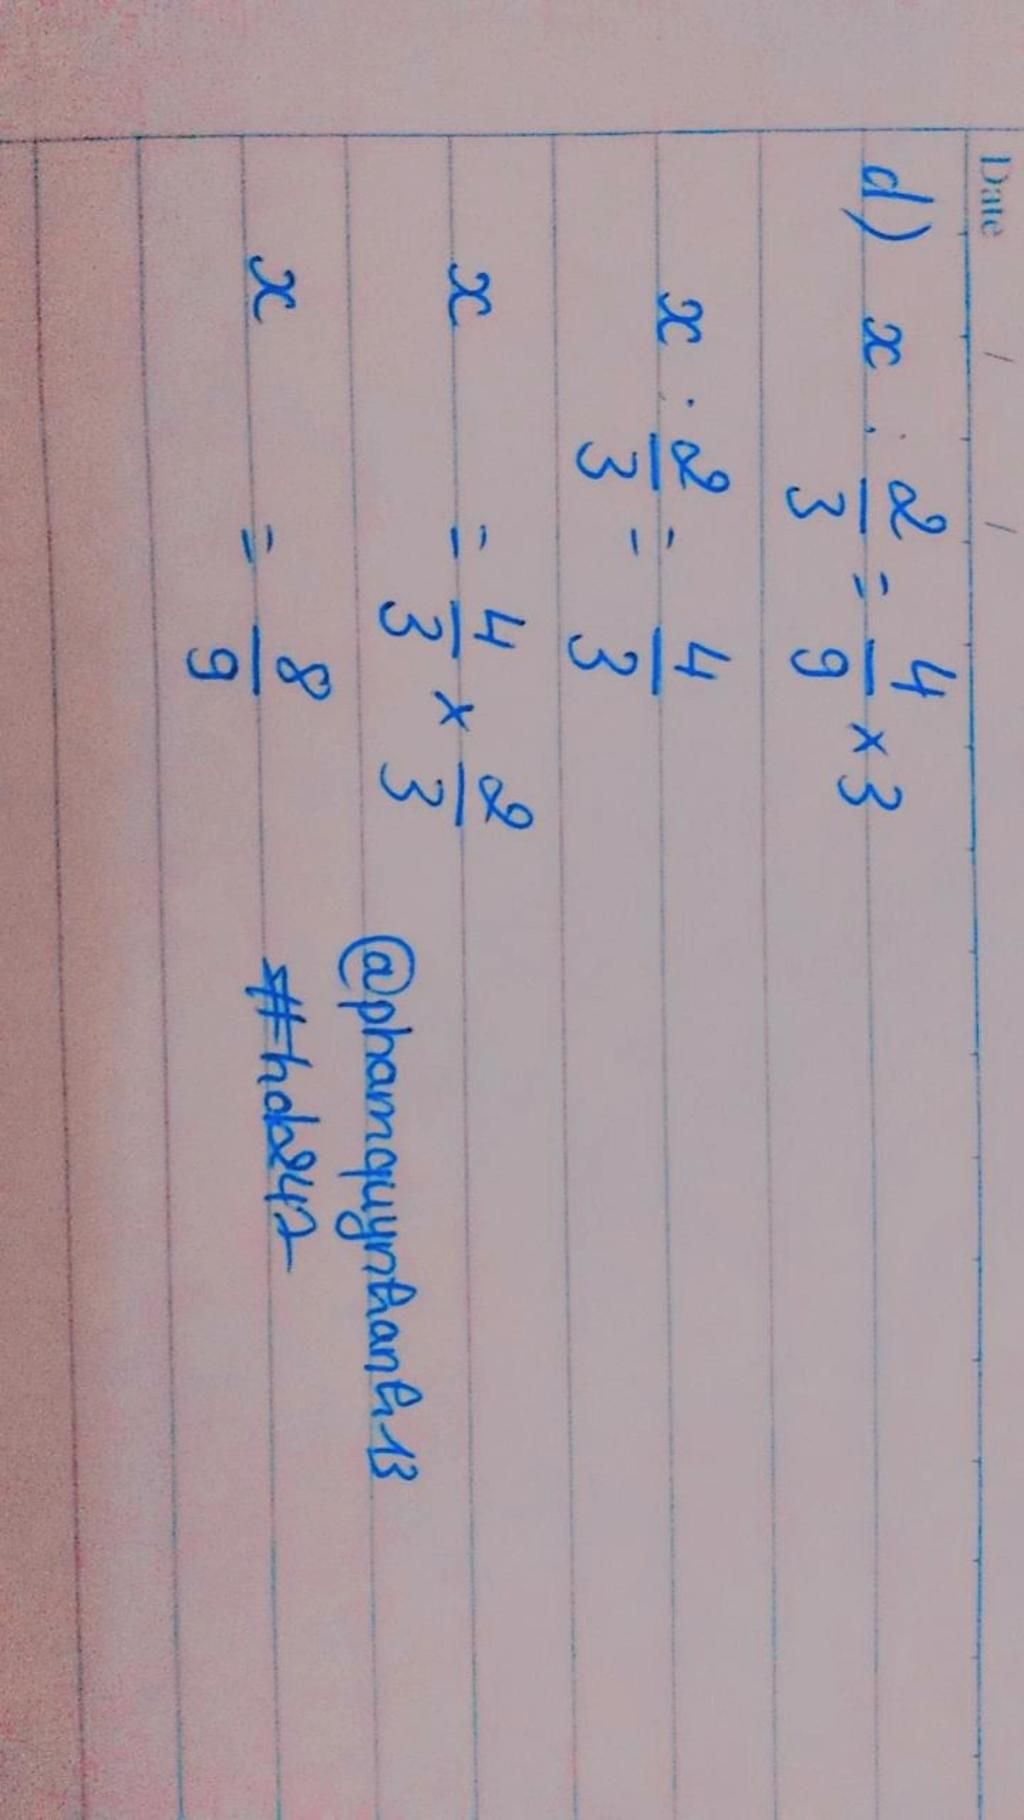 Date / /
d) x : 2/3 = 4/9 x 3
x : 2/3 = 4/3
x = 4/3 x 2/3
x = 8/9
@phamquynhanh13
#hob247